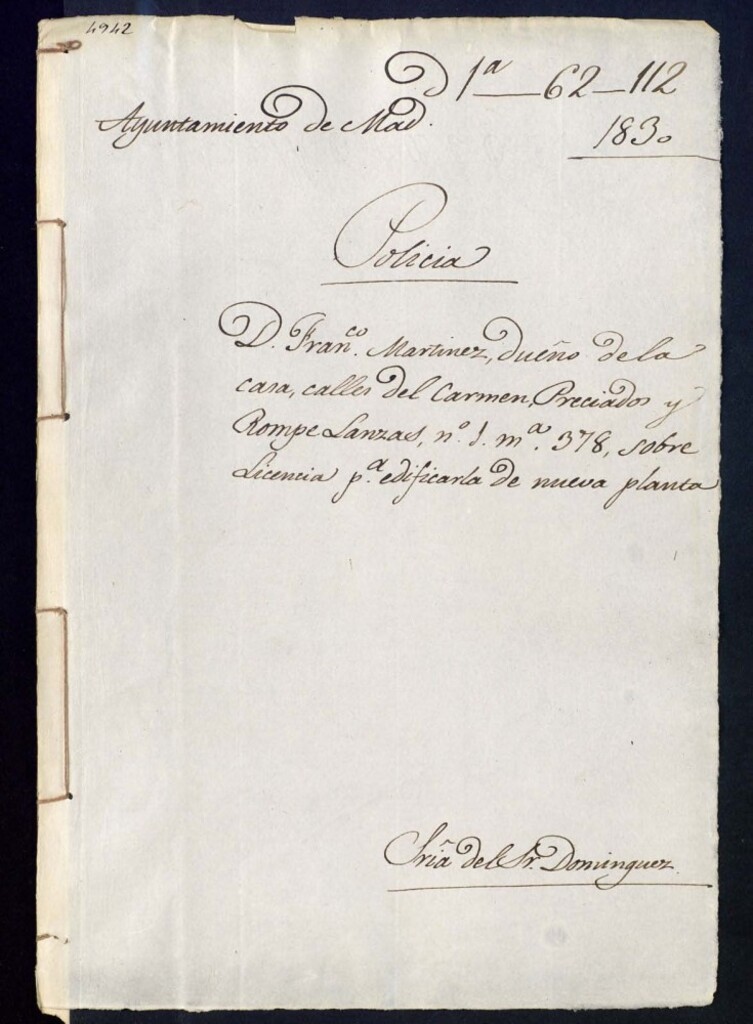 4942
D 1ª — 62 — 112
Ayuntamiento de Mad.
1830
Policia
D. Franᶜᵒ. Martinez, dueño de la
casa, calles del Carmen, Preciados y
Rompe Lanzas, nº. 1. mª. 378, sobre
Licencia pª. edificarla de nueva planta
Sriã del Sr. Dominguez.